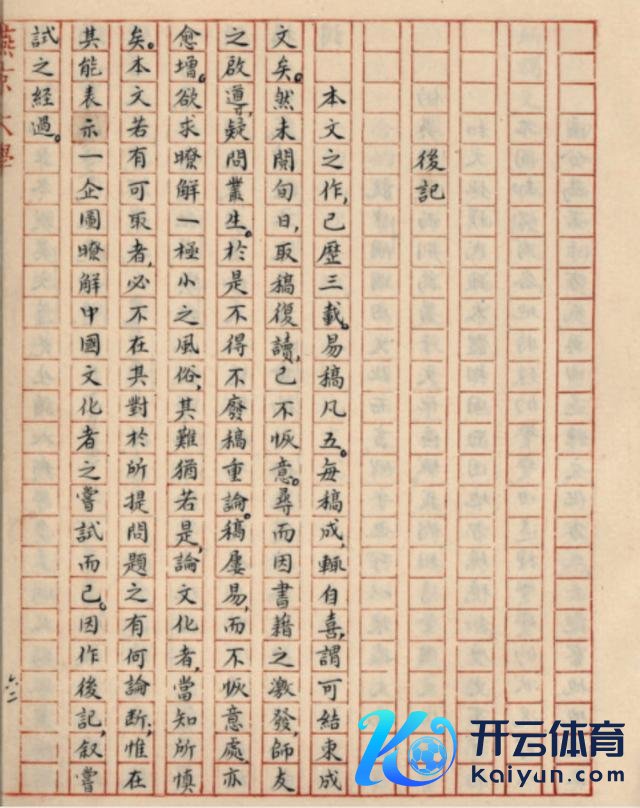 後記
本文之作，已歷三載。易稿凡五。每稿成，輒自喜，謂可結束成
文矣。然未閱旬日，取稿復讀，已不愜意。尋而因書籍之激發，師友
之啟導，疑問叢生。於是不得不廢稿重論。稿屢易，而不愜意處，亦
愈增。欲求暸解一極小之風俗，其難猶若是，論文化者，當知所慎
矣。本文若有可取者，必不在其對於所提問題之有何論斷，惟在
其能表示一企圖暸解中國文化者之嘗試而已。因作後記，叙嘗
試之經過。
燕京大學
六二
开云体育
kaiyun.com